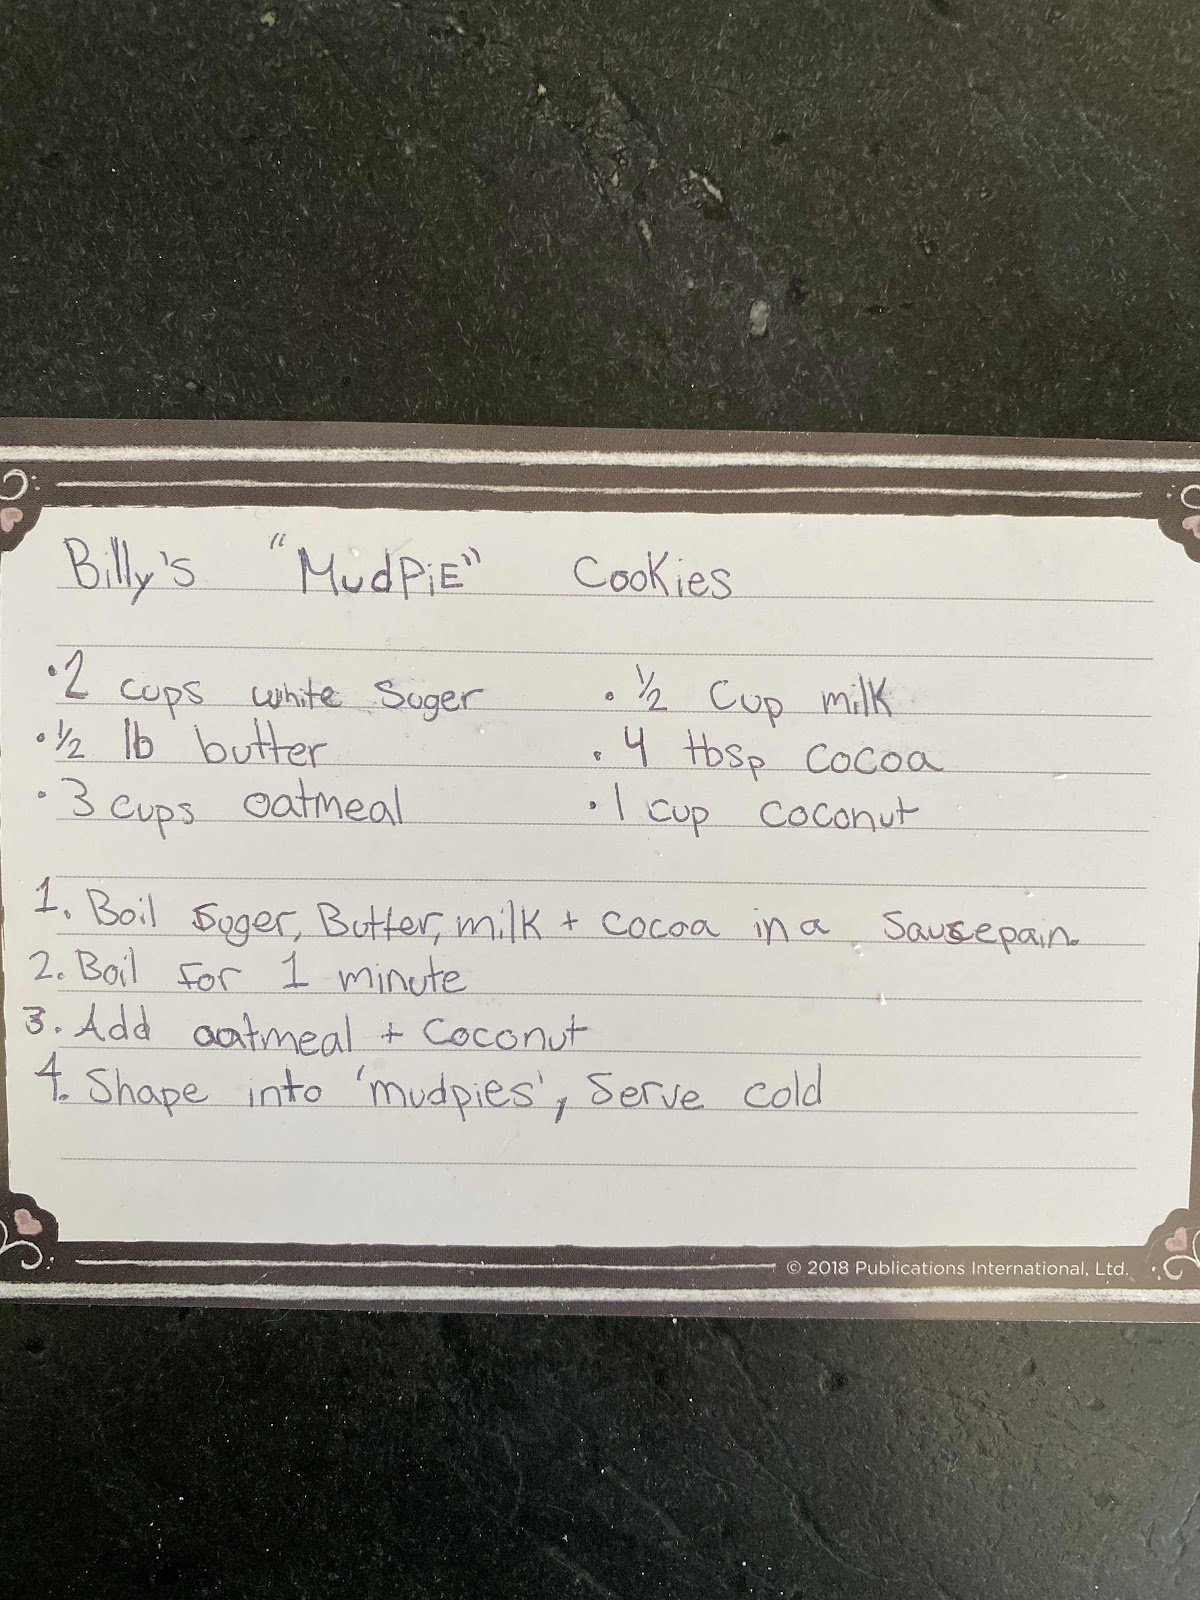 Billy's "MudPiE" Cookies
• 2 cups white Suger
• 1/2 Cup milk
• 1/2 lb butter
• 4 tbsp cocoa
• 3 cups oatmeal
• 1 cup coconut
1. Boil Suger, Butter, milk + cocoa in a Sausepain.
2. Boil for 1 minute
3. Add oatmeal + coconut
4. Shape into 'mudpies', Serve cold
© 2018 Publications International, Ltd.